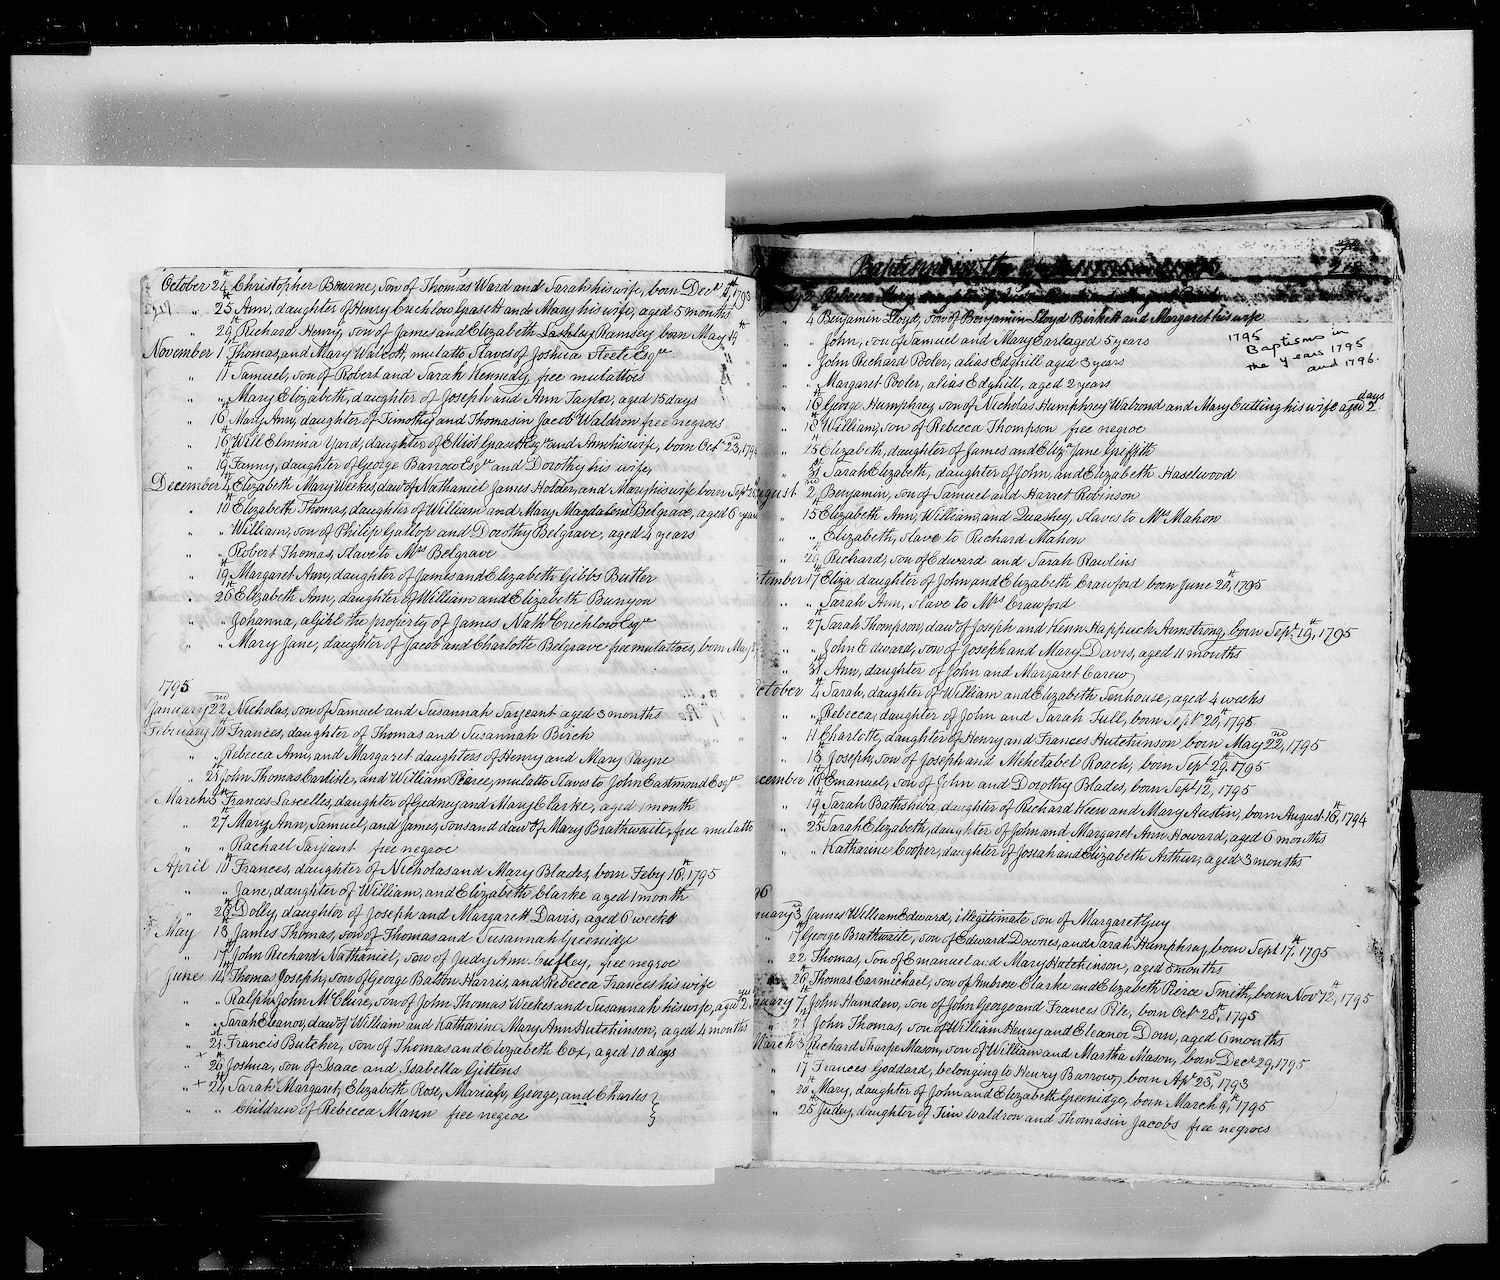 October 24th Christopher Bourne, son of Thomas Ward and Sarah his wife, born Decr 4th, 1793
" 25th Ann, daughter of Henry Crichlow Grasett and Mary his wife, aged 5 months
" 29th Richard Henry, son of James and Elizabeth Lashley Ramsey born May 19th
November 1 Thomas, and Mary Walcott, mulatto Slaves of Joshua Steele Esqre
" 11th Samuel, son of Robert and Sarah Kennedy, free mulattoes
" " Mary Elizabeth, daughter of Joseph and Ann Taylor, aged 15 days
" 16 Mary Ann, daughter of Timothy and Thomasin Jacob Waldron free negroes
" 16th Will Elmina Yard, daughter of Elliot Grasett and Ann his wife, born Octr 23rd, 179
" 19th Fanny, daughter of George Barrow Esqre and Dorothy his wife,
December 4th Elizabeth Mary Weekes, dawr of Nathaniel James Holder, and Mary his wife born Septr
" 10th Elizabeth Thomas, daughter of William and Mary Magdalene Belgrave, aged 6 years
" " William, son of Philip Gallop and Dorothy Belgrave, aged 4 years
" " Robert Thomas, slave to Mrs Belgrave
" 19th Margaret Ann, daughter of James and Elizabeth Gibbs Butler
" 26 Elizabeth Ann, daughter of William and Elizabeth Bunyon
" " Johanna, a girl the property of James Nathl Crichlow Esqre
" " Mary Jane, daughter of Jacob and Charlotte Belgrave free mulattoes, born May
1795
January 22nd Nicholas, son of Samuel and Susannah Sarjeant aged 3 months
February 10th Frances, daughter of Thomas and Susannah Birch
" " Rebecca Ann, and Margaret daughters of Henry and Mary Payne
" 24th John Thomas Carlisle, and William Pierce, mulatto Slaves to John Eastmond Esqre
March 5th Frances Lascelles, daughter of Gedney and Mary Clarke, aged 1 month
" 27 Mary Ann, Samuel, and James, sons and dawr of Mary Brathwaite, free mulatto
" " Rachael Sarjeant free negroe
April 10th Frances, daughter of Nicholas and Mary Blades, born Feby 16th, 1795
" " Jane, daughter of William, and Elizabeth Clarke aged 1 month
" 26th Dolly, daughter of Joseph and Margarett Davis, aged 6 weeks
May 13 James Thomas, son of Thomas and Susannah Greenidge
" 17th John Richard Nathaniel, son of Judy Ann Cuffey, free negroe
June 14th Thomas Joseph, son of George Balton Harris, and Rebecca Frances his wife
" " Ralph John McClure, son of John Thomas Weekes and Susannah his wife, aged 2
" " Sarah Eleanor, dawr of William and Katharine Mary Ann Hutchinson, aged 4 months
" 21 Francis Butcher, son of Thomas and Elizabeth Cox, aged 10 days
" 26th Joshua, son of Isaac and Isabella Gittens
" + 24th Sarah Margaret, Elizabeth Rose, Mariah, George, and Charles
" " Children of Rebecca Mann free negroe
Baptisms in the
Rebecca Mary, daughter of
" 4 Benjamin Lloyd, son of Benjamin Lloyd Birkett and Margaret his wife
" " John, son of Samuel and Mary Earl aged 5 years
1795
Baptisms in
the years 1795
and 1796.
" " John Richard Boler, alias Edghill aged 3 years
" " Margaret Boler, alias Edghill, aged 2 years
" 16th George Humphrey, son of Nicholas Humphrey Walrond and Mary Cutting his wife aged 2 days
" 18 William, son of Rebecca Thompson free negroe
" 25th Elizabeth, daughter of James and Eliza Jane Griffith
" 31st Sarah Elizabeth, daughter of John, and Elizabeth Haselwood
August 2nd Benjamin, son of Samuel and Harret Robinson
" 15th Elizabeth Ann, William, and Quashey, slaves to Mrs Mahon
" " Elizabeth, slave to Richard Mahon
" 29 Richard, son of Edward and Sarah Rawlins
tember 17th Eliza daughter of John and Elizabeth Crawford born June 20th, 1795
" " Sarah Ann, slave to Mrs Crawford
" 27th Sarah Thompson, dawr of Joseph and Kenn Happuck Armstrong, born Septr 19th, 1795
" " John Edward, son of Joseph and Mary Davis, aged 11 months
" 31st Ann, daughter of John and Margaret Carew
October 4th Sarah, daughter of William and Elizabeth Senhouse, aged 4 weeks
" " Rebecca, daughter of John and Sarah Full, born Septr 20th, 1795
" 11 Charlotte, daughter of Henry and Frances Hutchinson born May 22nd, 1795
" 13th Joseph, son of Joseph and Mehetabel Roach, born Septr 29th, 1795
cember 16th Emanuel, son of John and Dorothy Blades, born Septr 12th, 1795
" 19th Sarah Bathsheba, daughter of Richard Keen and Mary Austin, born August 16th, 1794
" 25th Sarah Elizabeth, daughter of John and Margaret Ann Howard, aged 6 months
" " Katharine Cooper, daughter of Josiah and Elizabeth Arthur, aged 3 months
96
nuary 3 James William Edward, illegitimate son of Margaret Guy
" 17th George Brathwaite, son of Edward Downes, and Sarah Humphrey, born Septr 17th, 1795
" 22 Thomas, son of Emanuel and Mary Hutchinson, aged 8 months
" 26 Thomas Carmichael, son of Ambrose Clarke and Elizabeth Pierce Smith, born Novr 12th, 1795
ruary 7th John Hamden, son of John George and Frances Pile, born Octr 28th, 1795
" 21 John Thomas, son of William Henry and Eleanor Dorn, aged 6 months
March 3 Richard Tharpe Mason, son of William and Martha Mason, born Decr 29, 1795
" 17 Frances Goddard, belonging to Henry Barrow, born Apl 23rd, 1793
" 20th Mary, daughter of John and Elizabeth Greenidge, born March 9th, 1795
" 25th Judey, daughter of Tim Waldron and Thomasin Jacobs free negroes